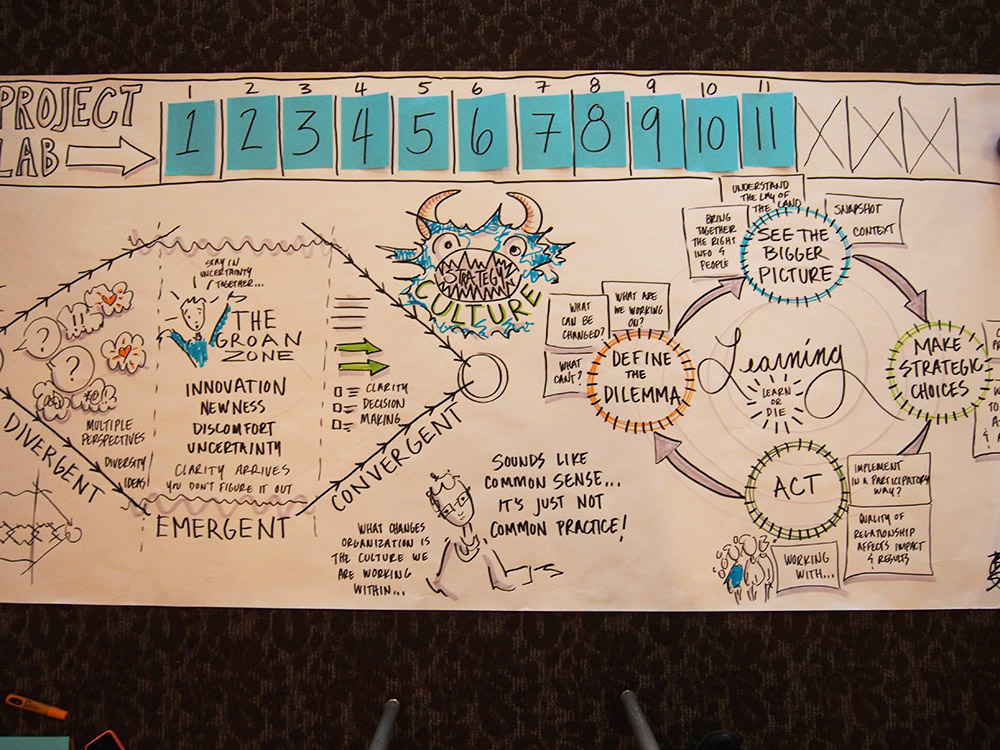 PROJECT
LAB
1 2 3 4 5 6 7 8 9 10 11
1 2 3 4 5 6 7 8 9 10 11
STAY IN
UNCERTAINTY
TOGETHER...
THE
GROAN
ZONE
INNOVATION
NEWNESS
DISCOMFORT
UNCERTAINTY
CLARITY ARRIVES
YOU DON'T FIGURE IT OUT
?
!!!
?
MULTIPLE
PERSPECTIVES
DIVERSITY
IDEAS
DIVERGENT
EMERGENT
CONVERGENT
CLARITY
DECISION
MAKING
STRATEGY
CULTURE
WHAT CHANGES
ORGANIZATION IS
THE CULTURE WE
ARE WORKING
WITHIN...
SOUNDS LIKE
COMMON SENSE...
IT'S JUST NOT
COMMON PRACTICE!
WHAT
CAN BE
CHANGED?
WHAT ARE
WE WORKING
ON?
WHAT
CAN'T?
DEFINE
THE
DILEMMA
BRING
TOGETHER
THE RIGHT
INFO &
PEOPLE
UNDERSTAND
THE LAY OF
THE LAND
SNAPSHOT
CONTEXT
SEE THE
BIGGER
PICTURE
Learning
LEARN
OR
DIE
MAKE
STRATEGIC
CHOICES
ACT
IMPLEMENT
IN A PARTICIPATORY
WAY?
QUALITY OF
RELATIONSHIP
AFFECTS IMPACT
& RESULTS
WORKING
WITH...